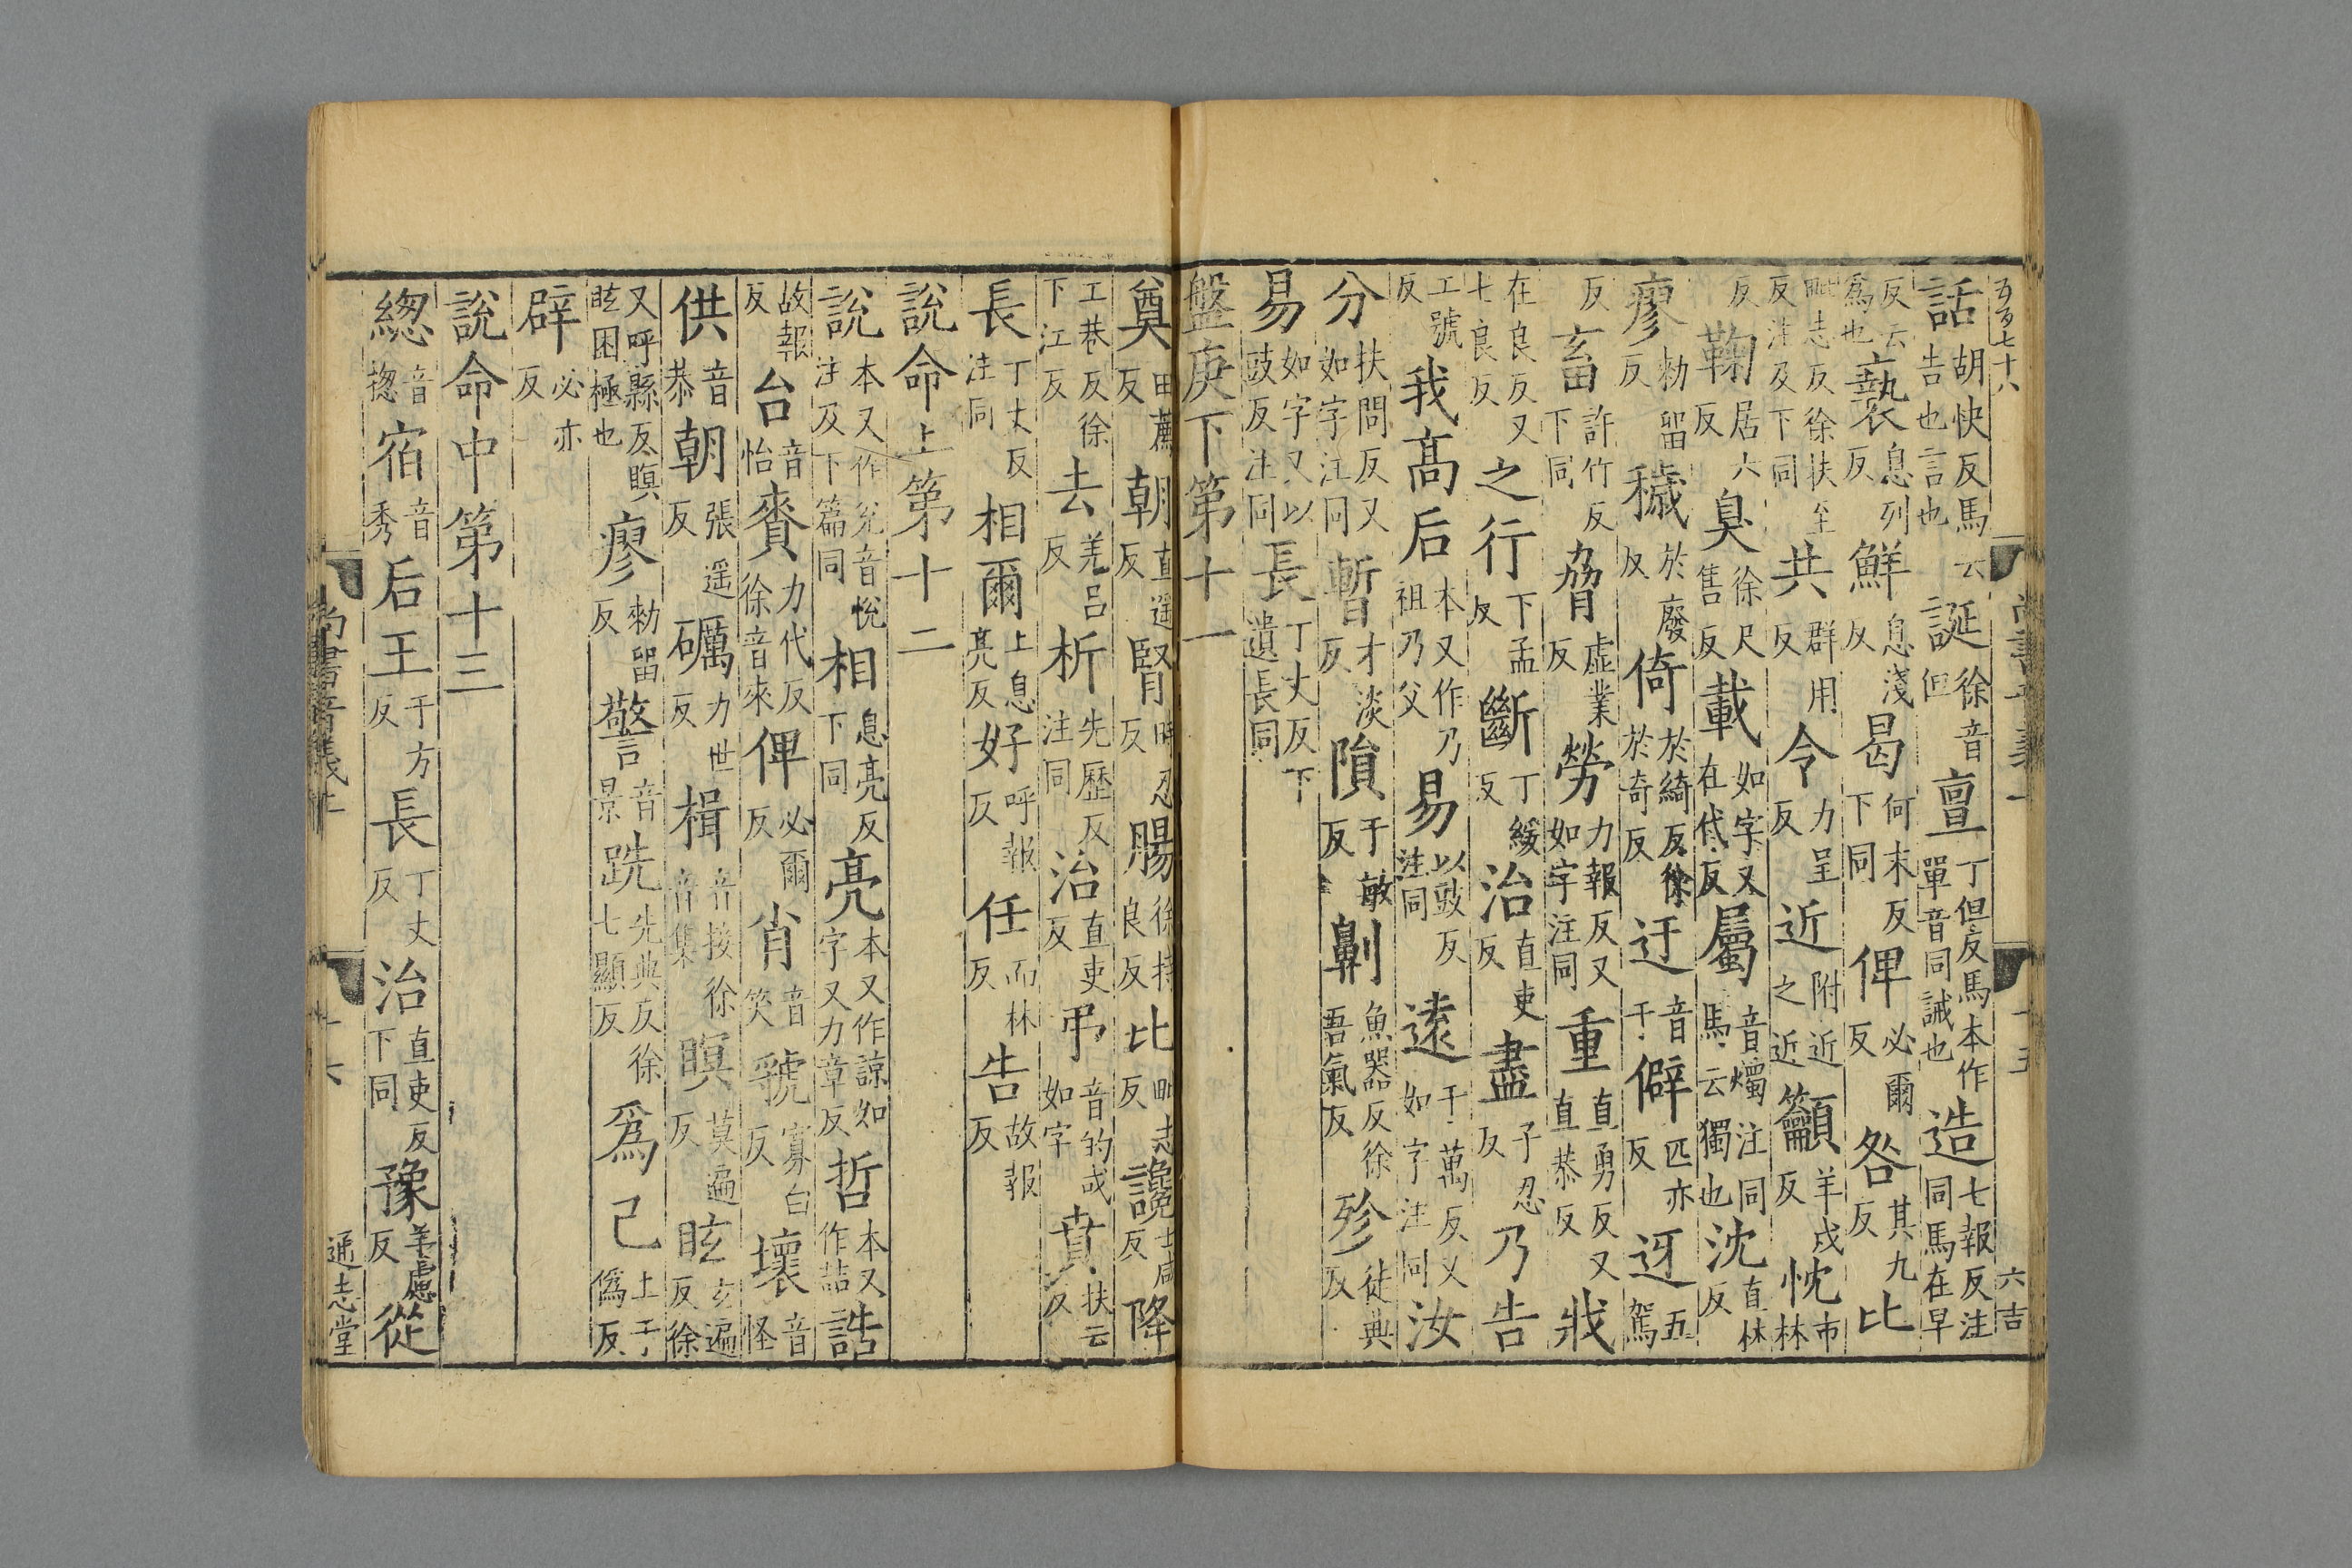 五百七十八
話胡快反馬云告也言也誕徐音但亶丁但反馬本作單音同誠也造七報反注同馬在早
反云爲也褻息列反鮮息淺反曷何末反下同俾必爾反咎其九反比
毗志反徐扶至反注及下同共群用反令力呈反近附近之近籲羊戍反忱市林
反鞠居六反臭徐尺售反載如字又在代反屬音燭注同馬云獨也沈直林反
廖勑留反穢於廢反倚於綺反徐於奇反迂音于僻匹亦反迓五駕
反畜許竹反下同脅虛業反勞力報反又如字注同重直勇反又直恭反戕
在良反又七良反之行下孟反斷丁緩反治直吏反盡子忍反乃告
工號反我高后本又作乃祖乃父易以豉反注同遠于萬反又如字注同汝
分扶問反又如字注同暫才淡反隕于敏反劓魚器反徐吾氣反殄徒典反
易如字又以豉反注同長丁丈反下遺長同
盤庚下第十一
奠田薦反朝直遥反腎時忍反腸徐持良反比毗志反讒士咸反降
工巷反徐下江反去羌呂反析先歷反注同治直吏反弔音的或如字賁扶云反
長丁丈反注同相爾上息亮反好呼報反任而林反告故報反
說命上第十二
說本又作兌音悅注及下篇同相息亮反下同亮本又作諒如字又力章反哲本又作喆誥
故報反台音怡賚力代反徐音來俾必爾反肖音笑虢寡白反壞音怪
供音恭朝張遥反礪力世反楫音接徐音集瞑莫遍反眩玄遍反徐
又呼縣反瞑眩困極也廖勑留反警音景跣先典反徐七顯反爲己上于僞反
辟必亦反
說命中第十三
緫音揔宿音秀后王于方反長丁丈反治直吏反下同豫羊慮反從
尚書音義上
十六
通志堂